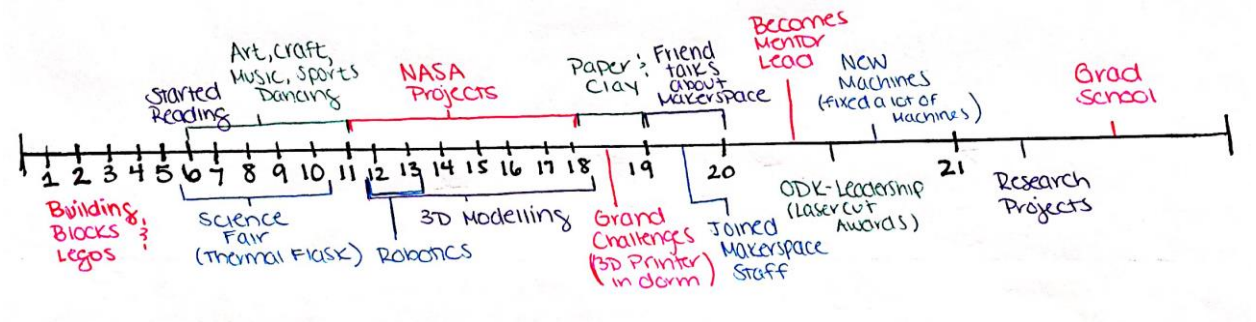 Becomes
Mentor
Lead
Art, craft,
Music, Sports
Dancing
NASA
Projects
Paper &
Clay
Friend
talks
about
Makerspace
New
Machines
(fixed a lot of
Machines)
Grad
School
Started
Reading
1 2 3 4 5 6 7 8 9 10 11 12 13 14 15 16 17 18 19 20 21
Building,
Blocks &
Legos
Science
Fair
(Thermal Flask)
Robotics
3D Modelling
Grand
Challenges
(3D Printer
in dorm)
Joined
Makerspace
Staff
ODK-Leadership
(Lasercut
Awards)
Research
Projects